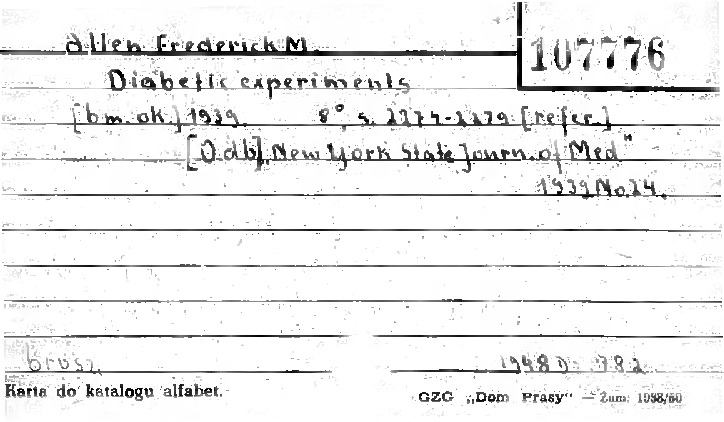 Allen Frederick M.
107776
Diabetic experiments
[bm. ok.] 1939. 8°, s. 2274-2279. [refer.]
[Odb] „New York State Journ. of Med"
1939 No. 24.
brosz.
1948 D. 782
Karta do katalogu alfabet.
GZG „Dom Prasy" — Zam. 1988/50